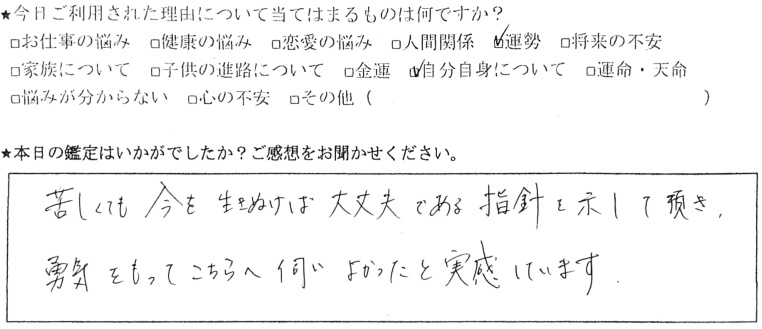 ★今日ご利用された理由について当てはまるものは何ですか？
□お仕事の悩み □健康の悩み □恋愛の悩み □人間関係 ☑運勢 □将来の不安
□家族について □子供の進路について □金運 ☑自分自身について □運命・天命
□悩みが分からない □心の不安 □その他（ ）
★本日の鑑定はいかがでしたか？ご感想をお聞かせください。
苦しくても 今を 生きぬけば 大丈夫 である 指針を示して頂き、
勇気をもってこちらへ伺い よかったと実感しています.